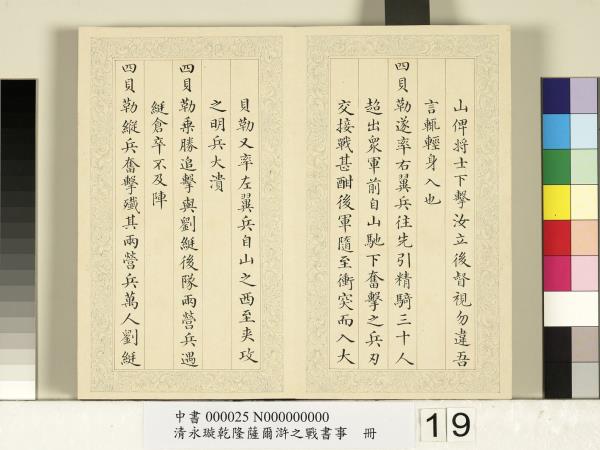 山俾將士下擊汝立後督視勿違吾
言輒輕身入也
四貝勒遂率右翼兵往先引精騎三十人
超出眾軍前自山馳下奮擊之兵刃
交接戰甚酣後軍隨至衝突而入大
貝勒又率左翼兵自山之西至夾攻
之明兵大潰
四貝勒乘勝追擊與劉綎後隊兩營兵遇
綎倉卒不及陣
四貝勒縱兵奮擊殲其兩營兵萬人劉綎
中書 000025 N000000000
清永璇乾隆薩爾滸之戰書事 冊
19